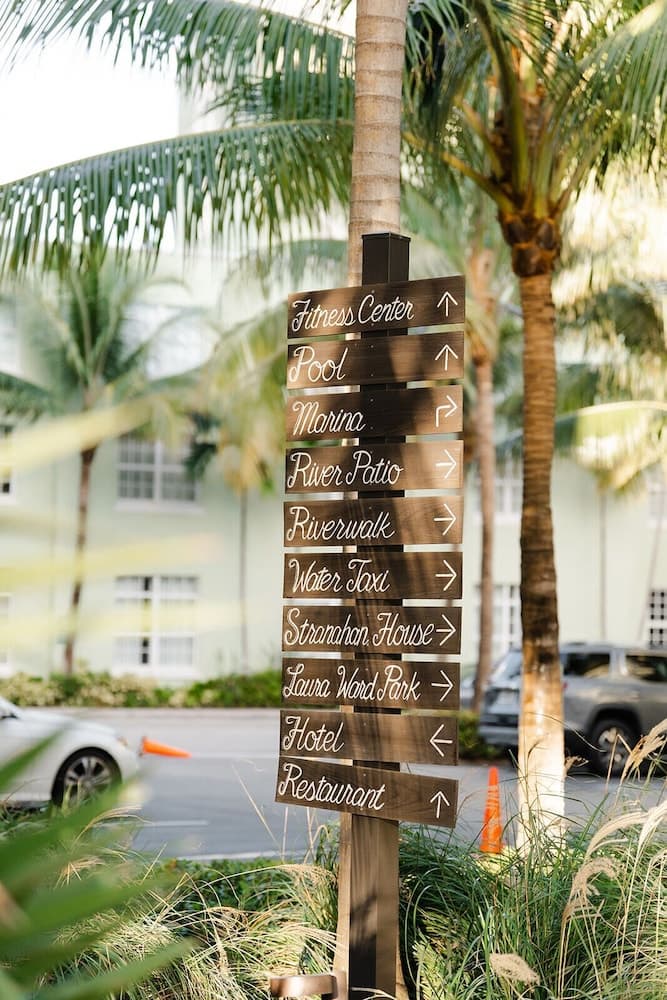 Fitness Center ↑
Pool ↑
Marina ↱
River Patio →
Riverwalk →
Water Taxi →
Stranahan House →
Laura Ward Park →
Hotel ←
Restaurant ↑